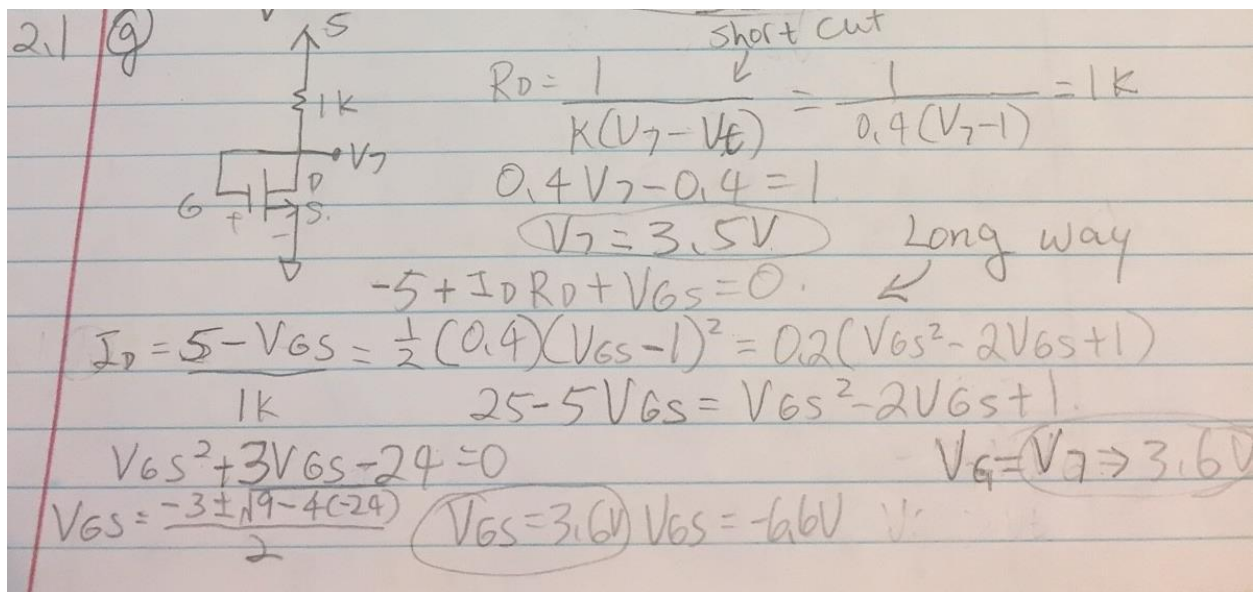 2.1 (g)
5
short cut
1K
RD = 1 / K(V7 - Vt) = 1 / 0.4(V7 - 1) = 1K
V7
D
G
S.
+
-
0.4V7 - 0.4 = 1
V7 = 3.5V
Long way
-5 + IDRD + VGS = 0.
ID = 5 - VGS / 1K = 1/2 (0.4)(VGS - 1)² = 0.2(VGS² - 2VGS + 1)
25 - 5VGS = VGS² - 2VGS + 1.
VGS² + 3VGS - 24 = 0
VG = V7 ⇒ 3.6V
VGS = -3 ± √9 - 4(-24) / 2
VGS = 3.6V VGS = -6.6V